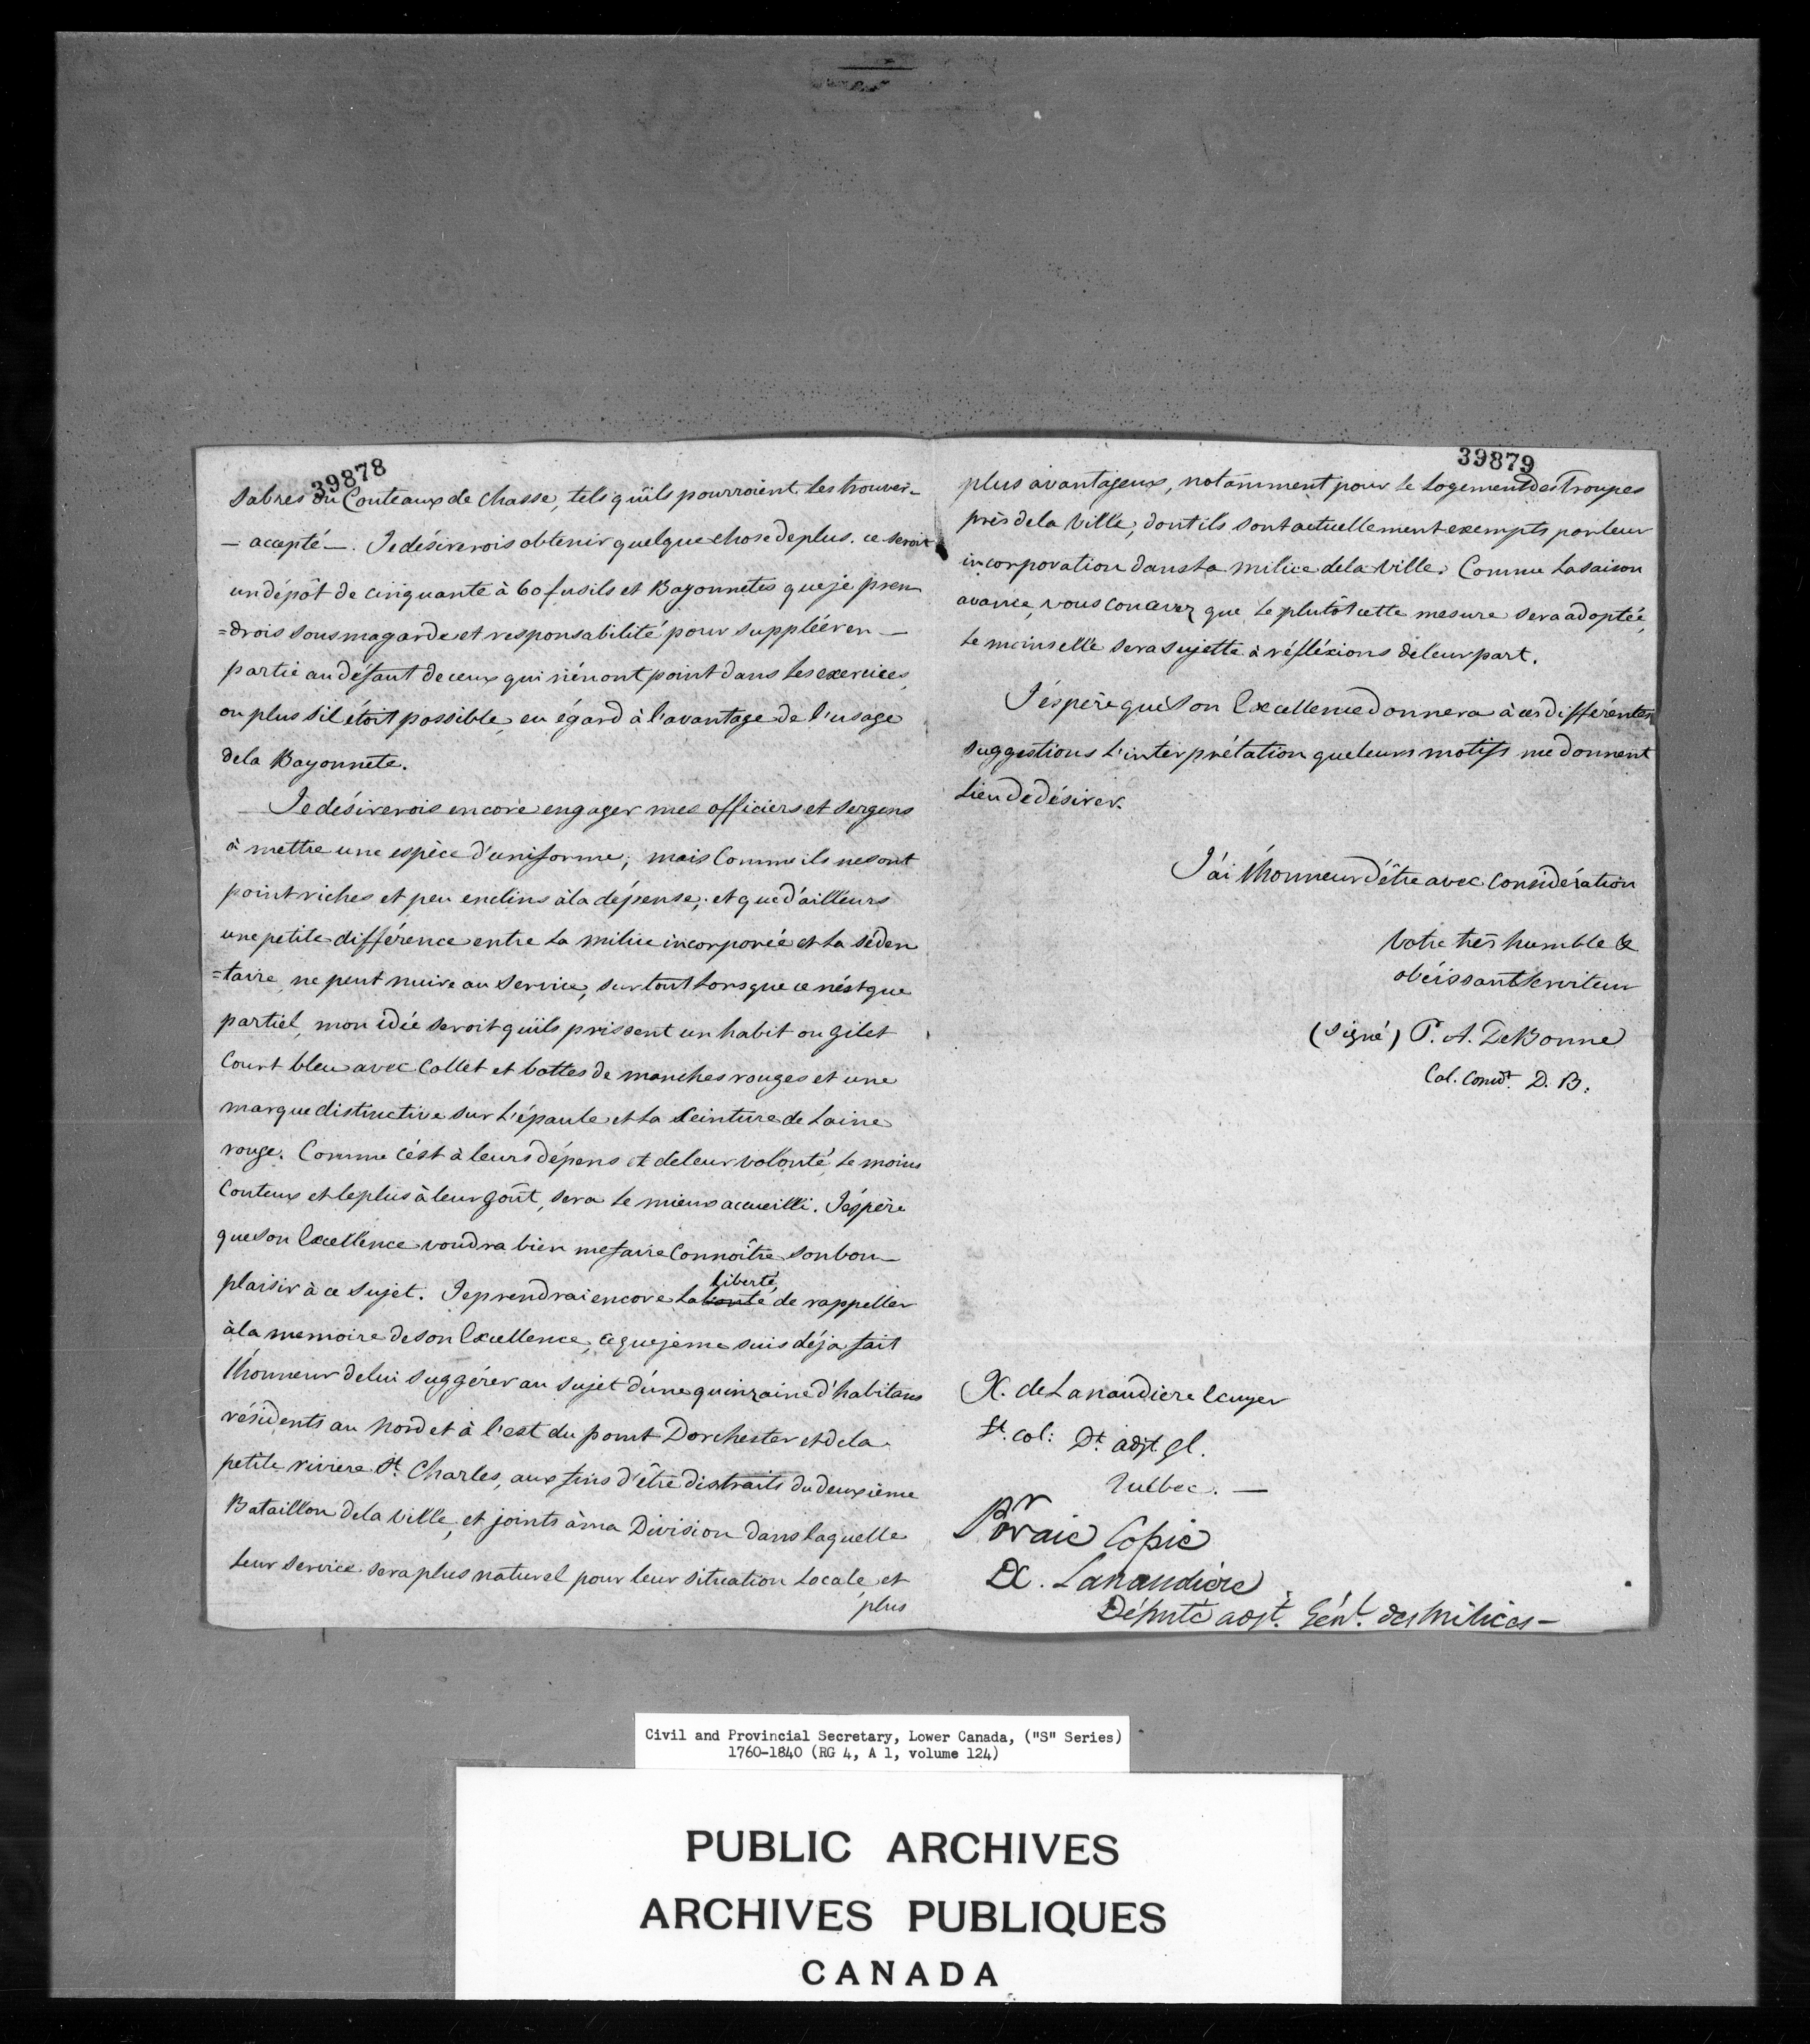 39878
Sabres ou Couteaux de chasse, tels qu'ils pourroient les trouver –
– accepté –. Je désirerois obtenir quelque chose de plus. ce seroit
un dépôt de cinquante à 60 fusils et Bayonnetes que je pren
=drois sous ma garde et responsabilité pour suppléer en –
partie au défaut de ceux qui n'en ont point dans les exercices,
ou plus s'il étoit possible, eu égard à l'avantage de l'usage
de la Bayonnete.
Je désirerois encore engager mes officiers et sergens
à mettre une espèce d'uniforme; mais comme ils ne sont
point riches et peu enclins à la dépense; et que d'ailleurs
une petite différence entre la milice incorporée et la séden
=taire, ne peut nuire au service, surtout lorsque ce n'est que
partiel, mon idée seroit qu'ils prissent un habit ou gilet
Court bleu avec Collet et bottes de manches rouges et une
marque distinctive sur l'épaule et la Ceinture de Laine
rouge. Comme c'est à leurs dépens et de leur volonté, le moins
Couteux et le plus à leur goût, sera le mieux accueilli. J'espère
que son Excellence voudra bien me faire Connoître son bon –
plaisir à ce sujet. Je prendrai encore la bonté liberté, de rappeller
à la memoire de son Excellence, ce que je me suis déja fait
l'honneur de lui suggérer au sujet d'une quinzaine d'habitans
résidents au nord et à l'est du pont Dorchester et de la
petite riviere St. Charles, aux fins d'être distraits du deuxième
Bataillon de la ville, et joints à ma Division dans laquelle
leur service sera plus naturel pour leur situation Locale, et
plus
39879
plus avantageux, notamment pour le Logement des Troupes
près de la Ville, dont ils sont actuellement exempts par leur
incorporation dans la milice de la ville. Comme la saison
avance, vous concevez que le plutôt cette mesure sera adoptée,
le moins elle sera sujette à réfléxions de leur part.
J'espère que Son Excellence donnera à ces différentes
suggestions l'interprétation que leurs motifs me donnent
lieu de désirer.
J'ai l'honneur d'être avec considération
Votre très humble &
obéissant Serviteur
(Signé) P. A. DeBonne
Col. Comdt. D. B.
X. de Lanaudiere Ecuyer
Lt. col: Dt. adjt. gl.
Quebec. –
Pr vraie Copie
X. Lanaudière
Député adjt. Génl. des Milices –
Civil and Provincial Secretary, Lower Canada, ("S" Series)
1760-1840 (RG 4, A 1, volume 124)
PUBLIC ARCHIVES
ARCHIVES PUBLIQUES
CANADA